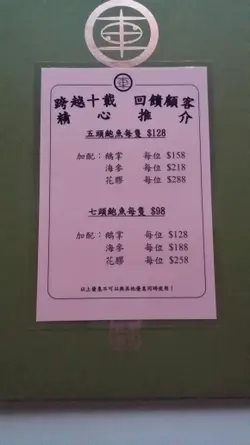 跨越十載 回饋顧客
精心推介
五頭鮑魚每隻 $128
加配：鵝掌 每位 $158
海參 每位 $218
花膠 每位 $288
七頭鮑魚每隻 $98
加配：鵝掌 每位 $128
海參 每位 $188
花膠 每位 $258
以上優惠不可以與其他優惠同時使用！